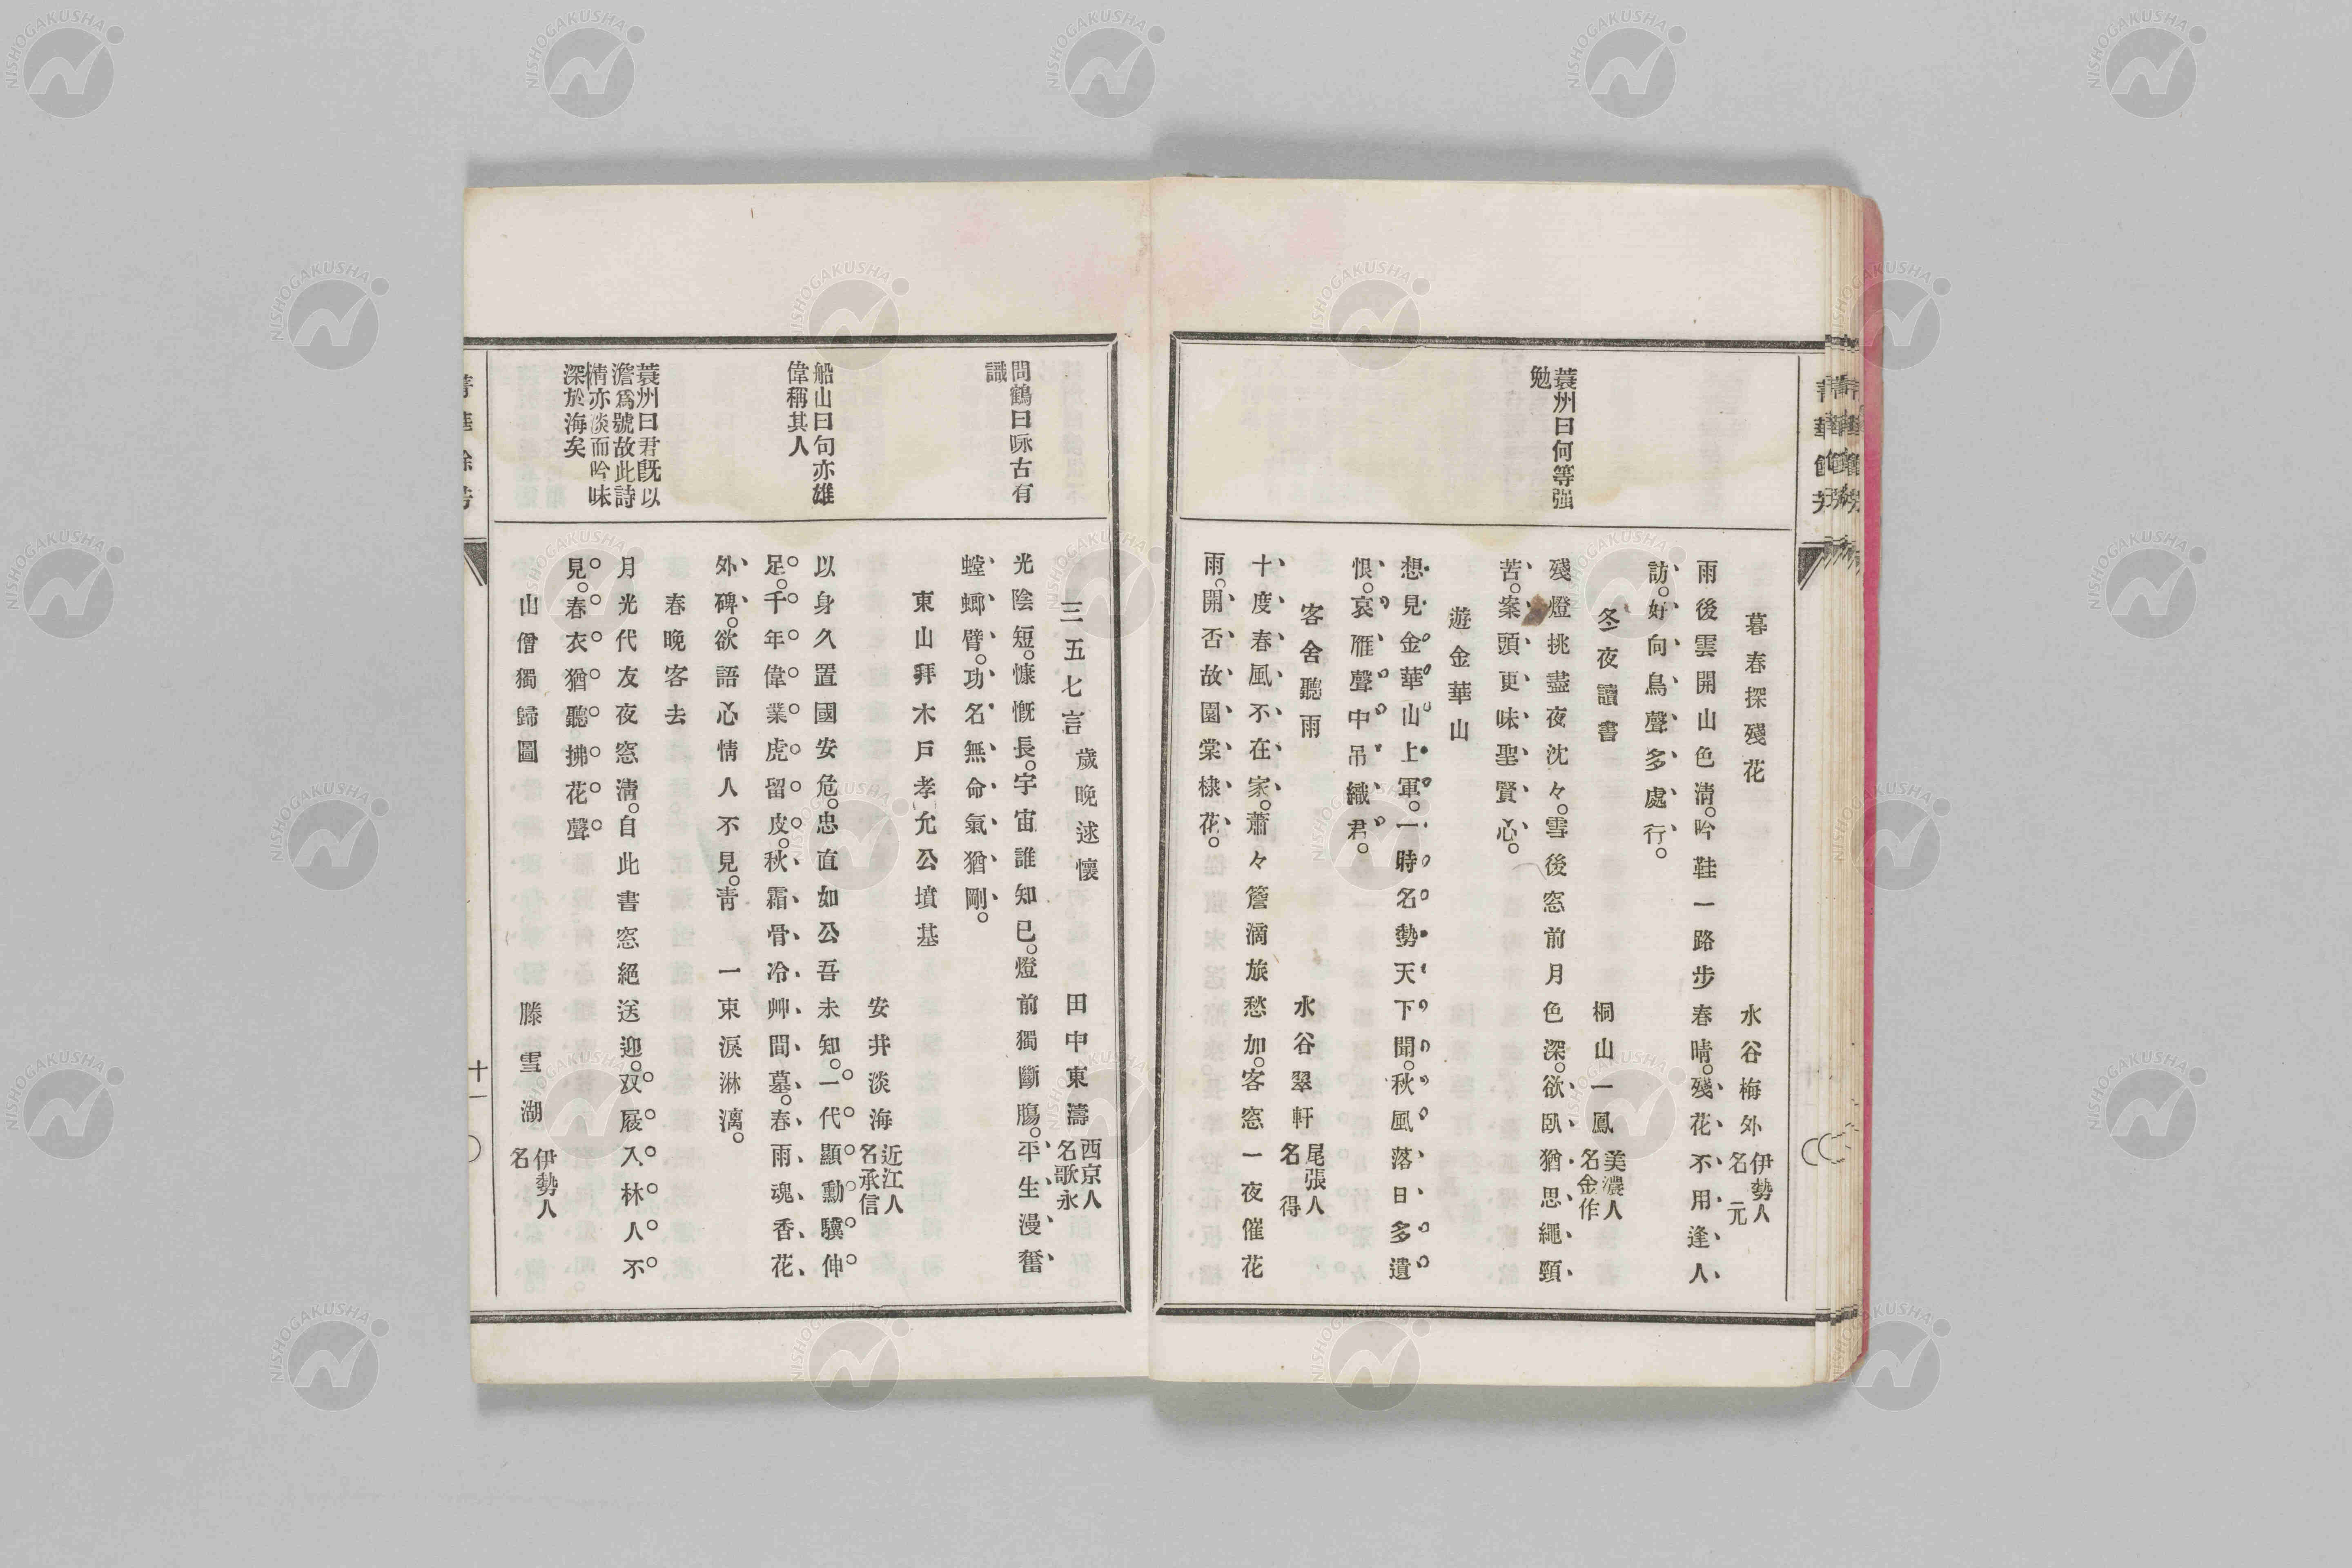 暮春探殘花
水谷梅外 伊勢人
名 元
雨後雲開山色淸。吟鞋一路步春晴。殘花不用逢人
訪。好向鳥聲多處行。
蓑州曰何等强
勉
冬夜讀書
桐山一鳳 美濃人
名金作
殘燈挑盡夜沈々。雪後窓前月色深。欲臥猶思繩頸
苦。案頭更味聖賢心。
遊金華山
想見金華山上軍。一時名勢天下聞。秋風落日多遺
恨。哀雁聲中吊織君。
客舍聽雨
水谷翠軒 尾張人
名 得
十度春風不在家。蕭々簷滴旅愁加。客窓一夜催花
雨。開否故園棠棣花。
三五七言 歲晩述懷
田中東濤 西京人
名歌永
問鶴曰咏古有
識
光陰短。慷慨長。宇宙誰知已。燈前獨斷膓。平生漫奮
螳螂臂。功名無命氣猶剛。
東山拜木戶孝允公墳基
安井淡海 近江人
名承信
船山曰句亦雄
偉稱其人
以身久置國安危。忠直如公吾未知。一代顯勳驥伸
足。千年偉業虎留皮。秋霜骨冷艸間墓。春雨魂香花
外碑。欲語心情人不見。靑 一束淚淋漓。
春晩客去
蓑州曰君旣以
澹爲號故此詩
情亦淡而吟味
深於海矣
月光代友夜窓淸。自此書窓絕送迎。双屐入林人不
見。春衣猶聽拂花聲
山僧獨歸圖
滕雪湖 伊勢人
名
十一
NISHOGAKUSHA